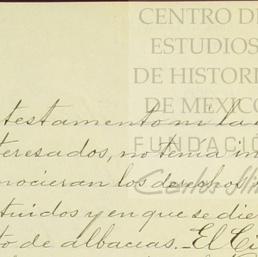 CENTRO DE
ESTUDIOS
DE HISTORI
DE MEXICO
FUNDACIÓ
Carlos
testamento ni la
teresados, no tenia in
nocieran los derechos
tuidos y en que se die
to de albaceas. _ El Ci